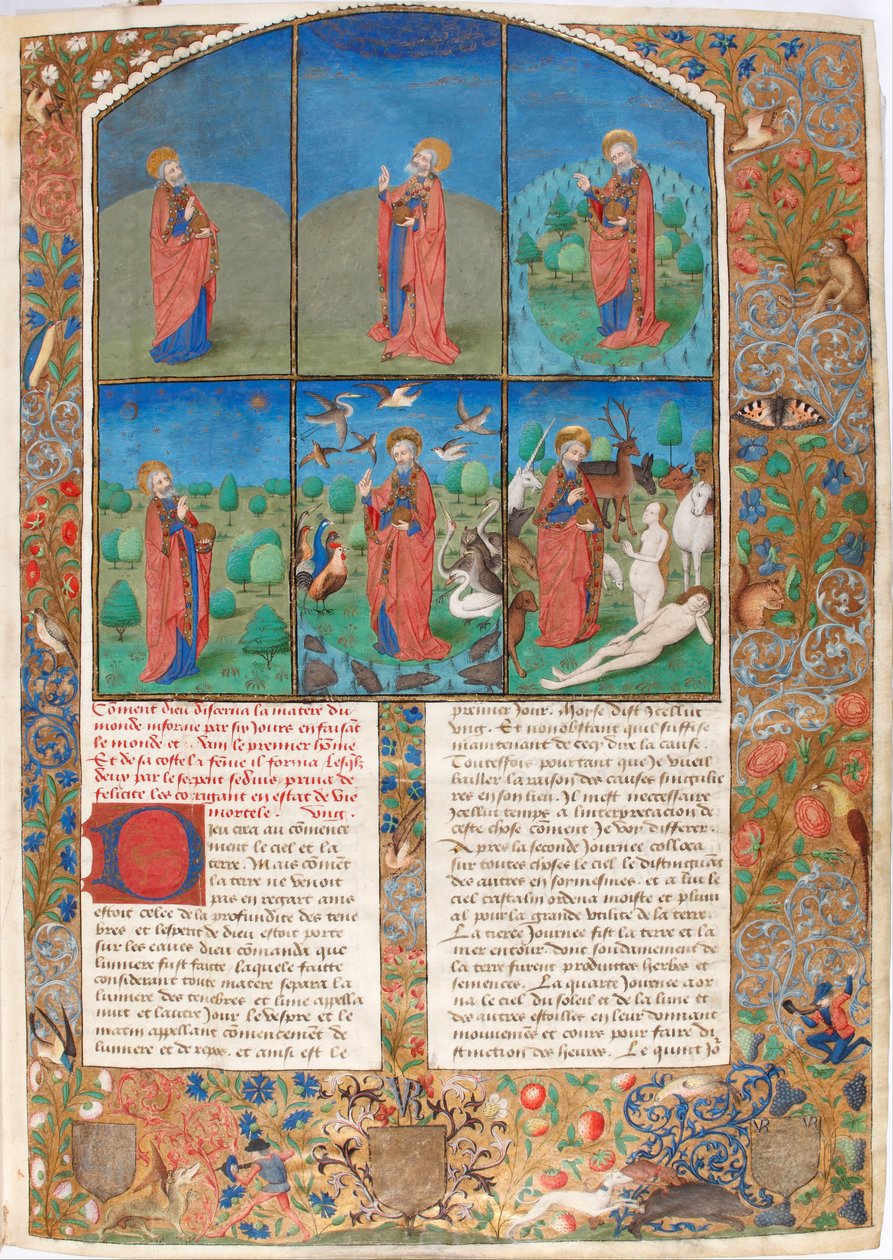 Coment dieu discerna la matere du
monde informe par six Jours en faisāt
le monde et dam le premier hōme
Et de sa coste la fēme il forma lesqlz
deux par le serpent seduis priua de
felicite les corrigant en estat de vie
mortele. Vng.
Dieu crea au cōmence
ment le ciel et la
terre. Mais cōment
la terre ne venoit
pas en regart ains
estoit celee de la profundite des tene
bres et lesperit de dieu estoit porte
sur les eaues dieu cōmanda que
lumiere fust faitte, laquele faitte
considerant toute matere separa la
lumiere des tenebres et lune appella
nuit et lautre Jour le vespre et le
matin appellant cōmencement de
lumiere et de repos. et ainsi est le
premier Jour. Moyse dist Jcellui
vng. Et nonobstant quil suffise
maintenant de cecy dire la cause.
Touteffois pourtant que Je vueil
baillier la raison des causes singulie
res en son lieu. Jl mest necessaire
Jcellui temps a linterpretacion de
ceste chose cōment Je voy differer.
Apres la seconde Journee colloca
sur toutes choses le ciel le distinguāt
des autres en soymesmes. et a lui le
ciel cristalin ordena moiste et pluui
al pour la grande vtilite de la terre.
La tierce Journee fist la terre et la
mer entour. dont soudainement de
la terre furent produittes herbes et
semences. La quarte Journee aor
na le ciel du soleil et de la lune et
des autres estoilles en leur donnant
mouuemēs et cours pour faire di
stinction des heures. Le quint Jo
VR
VR VR